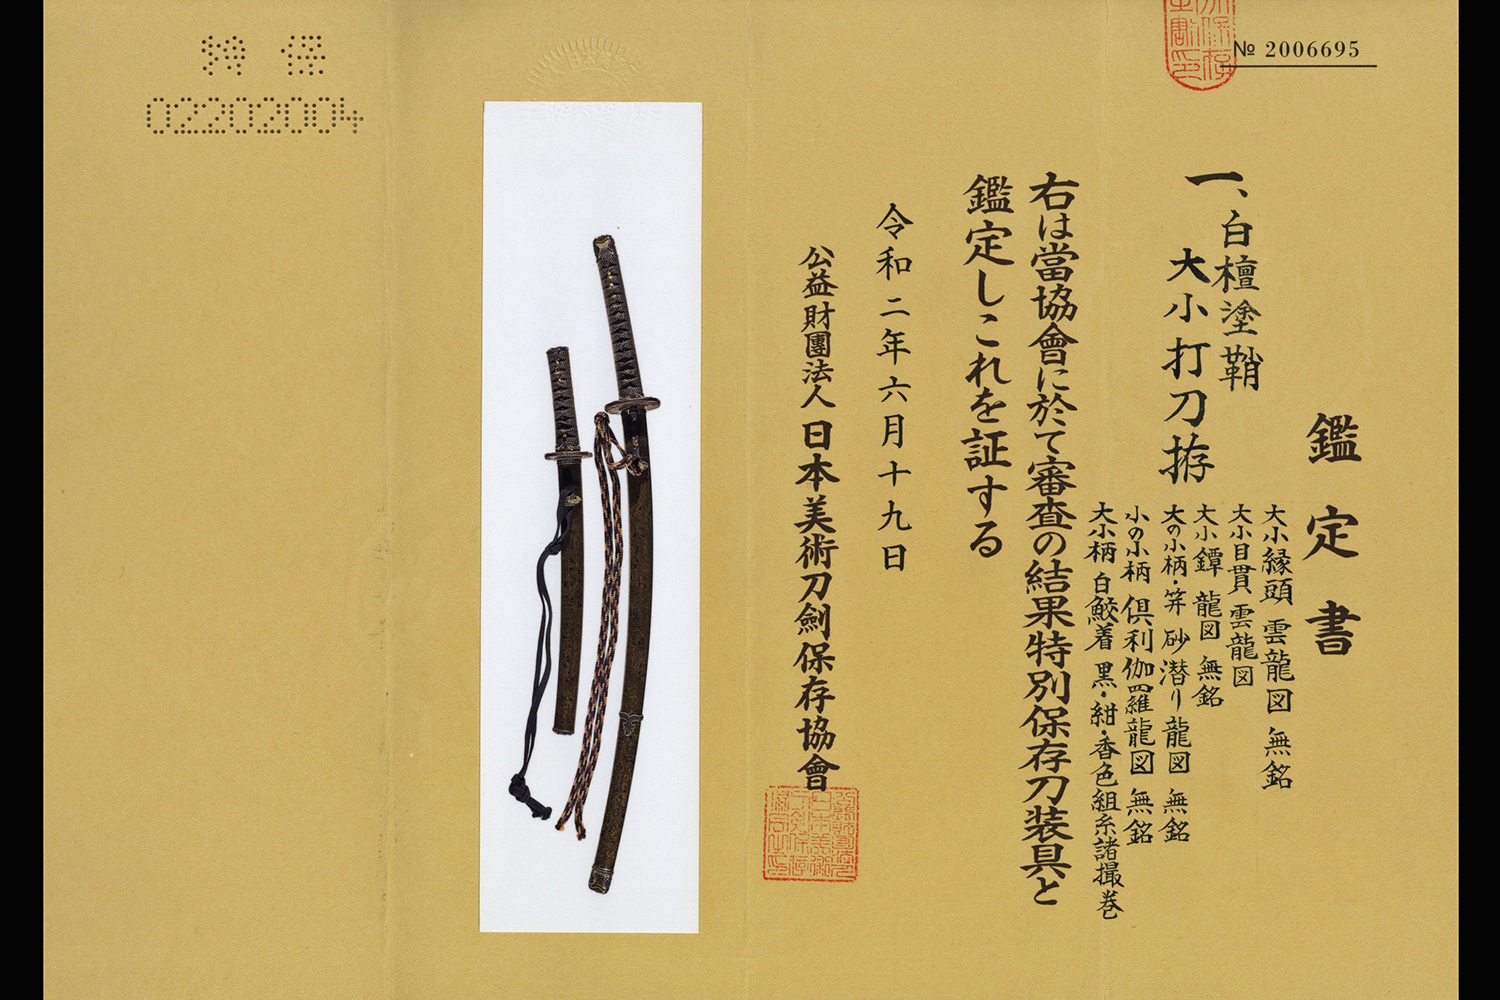 № 2006695
鑑定書
一、白檀塗鞘
大小打刀拵
大小縁頭 雲龍図 無銘
大小目貫 雲龍図
大小鐔 龍図 無銘
大の小柄・笄 砂潜り龍図 無銘
小の小柄 倶利伽羅龍図 無銘
大小柄 白鮫着 黒・紺・香色組糸諸撮巻
右は當協會に於て審査の結果特別保存刀装具と
鑑定しこれを証する
令和二年六月十九日
公益財團法人 日本美術刀劍保存協會
特 保
02202004